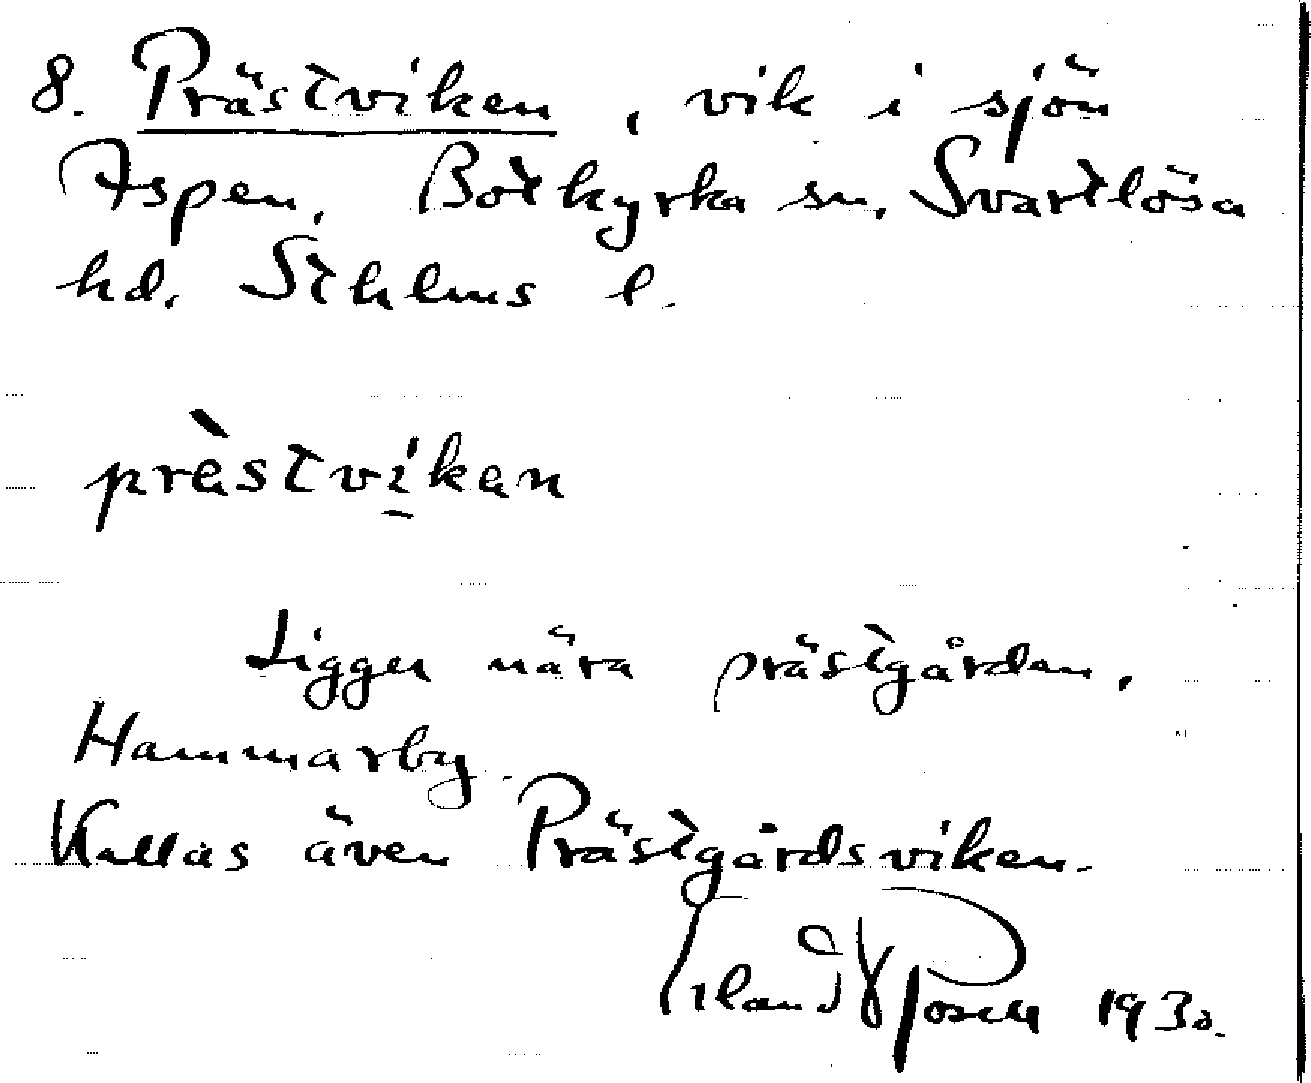 8. Prästviken, vik i sjön
Aspen, Botkyrka sn, Svartlösa
hd. Sthlms l.
prèstvikan
Ligger nära prästgården,
Hammarby.
Kallas även Prästgårdsviken.
Erland Rosell 1930.